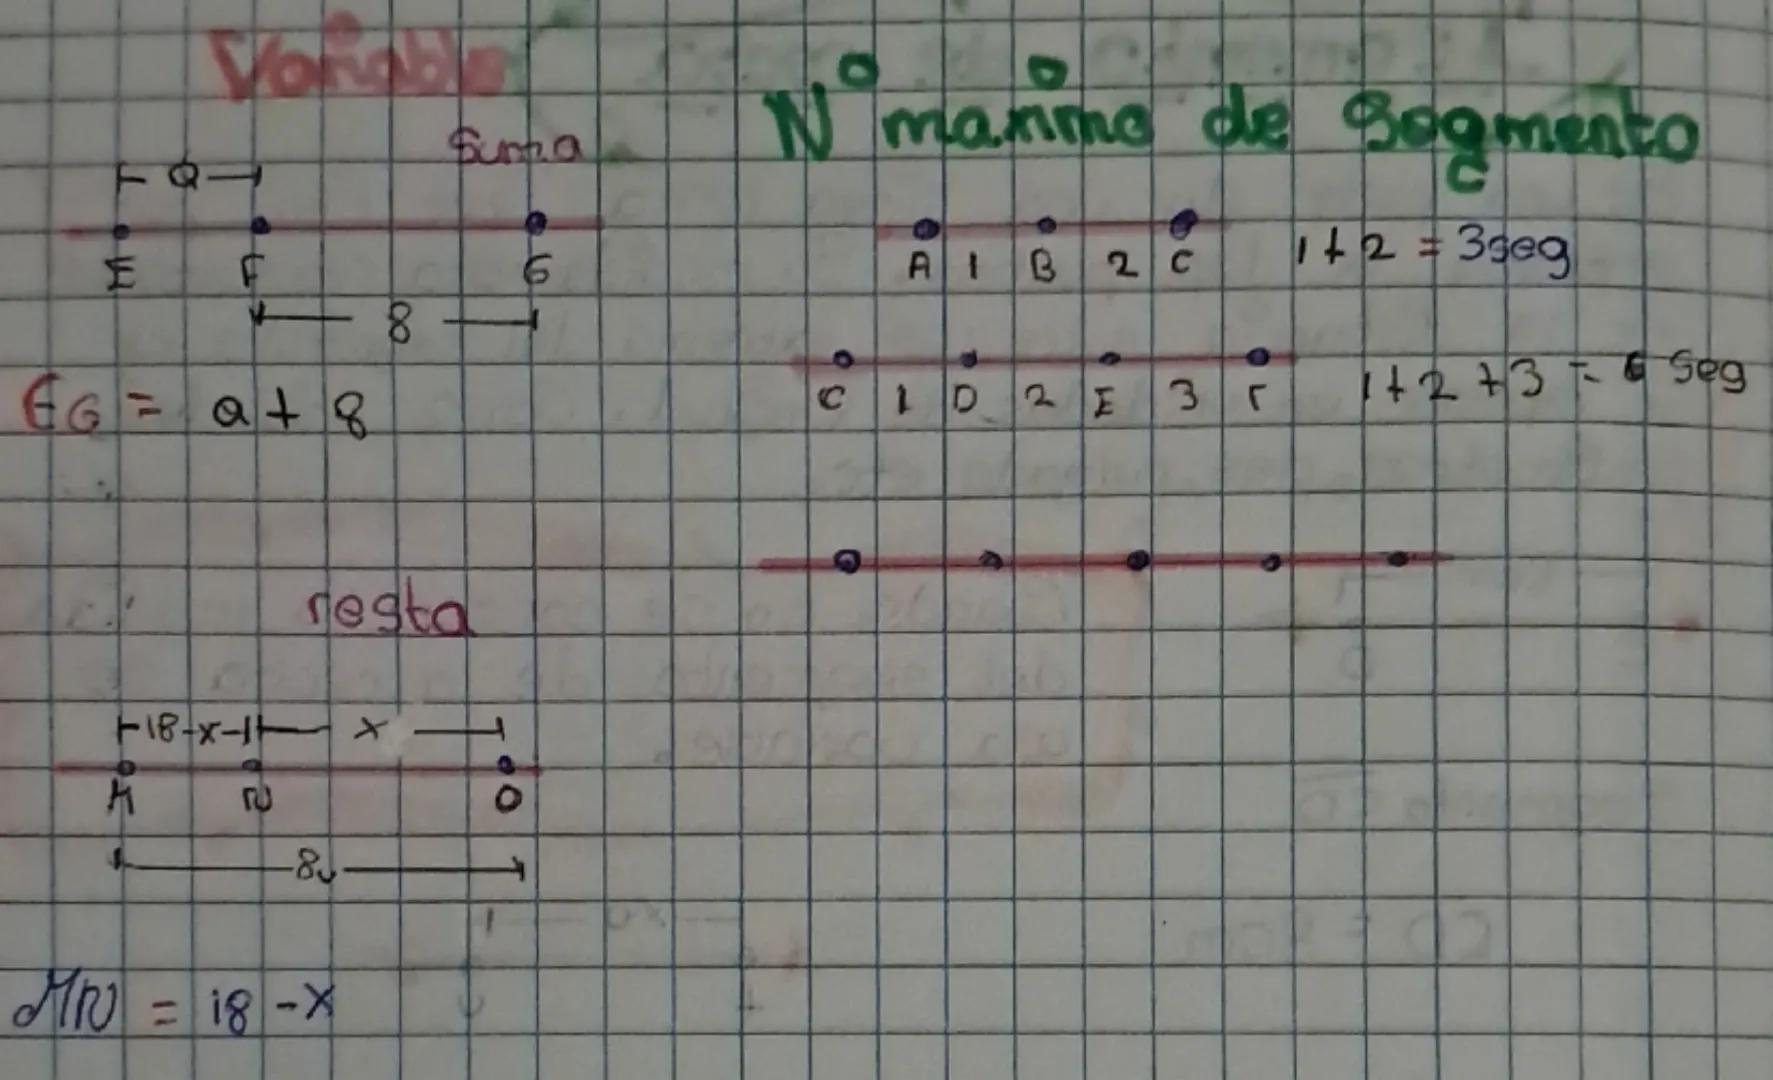 Variable
Suma
a
E F G
8
EG = a + 8
resta
18-x x
M N O
8
MN = 18 - x
N° maximo de Segmento
A 1 B 2 C 1 + 2 = 3 seg
C 1 D 2 E 3 F 1 + 2 + 3 = 6 Seg